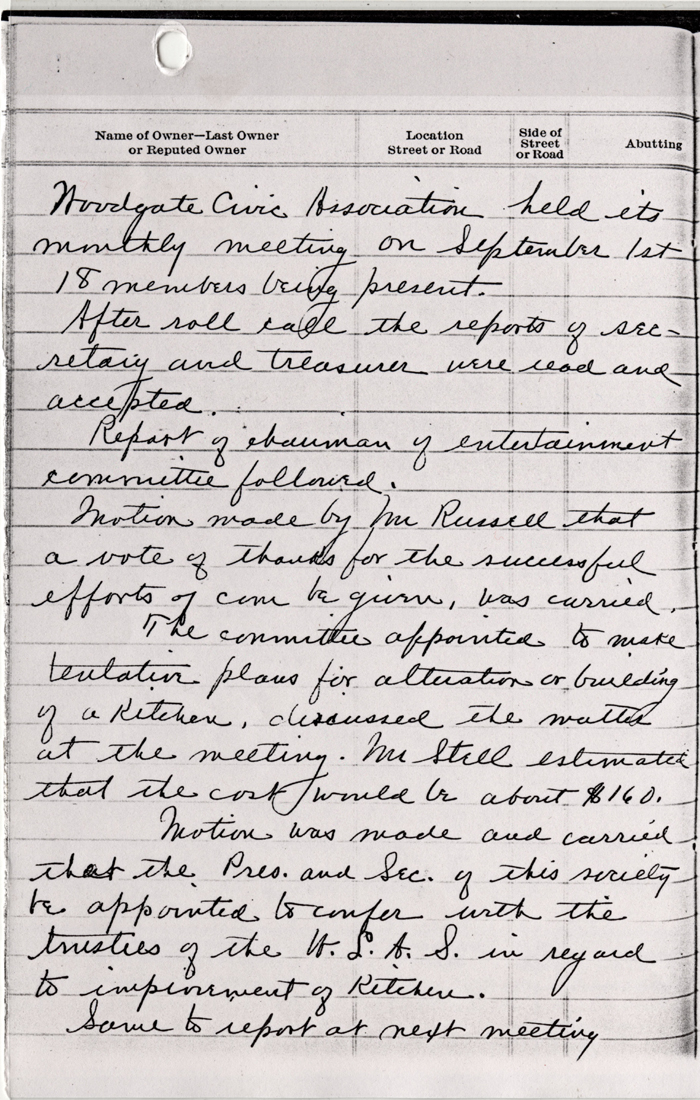 Name of Owner—Last Owner
or Reputed Owner
Location
Street or Road
Side of
Street
or Road
Abutting
Woodgate Civic Association held its
monthly meeting on September 1st
18 members being present.
After roll call the reports of sec-
retary and treasurer were read and
accepted.
Report of chairman of entertainment
committee followed.
Motion made by Mr Russell that
a vote of thanks for the successful
efforts of com be given, was carried.
The committee appointed to make
tentative plans for alteration or building
of a Kitchen, discussed the matter
at the meeting. Mr Stell estimated
that the cost would be about $160.
Motion was made and carried
that the Pres. and Sec. of this society
be appointed to confer with the
trusties of the W. L. A. S. in regard
to improvement of Kitchen.
Same to report at next meeting